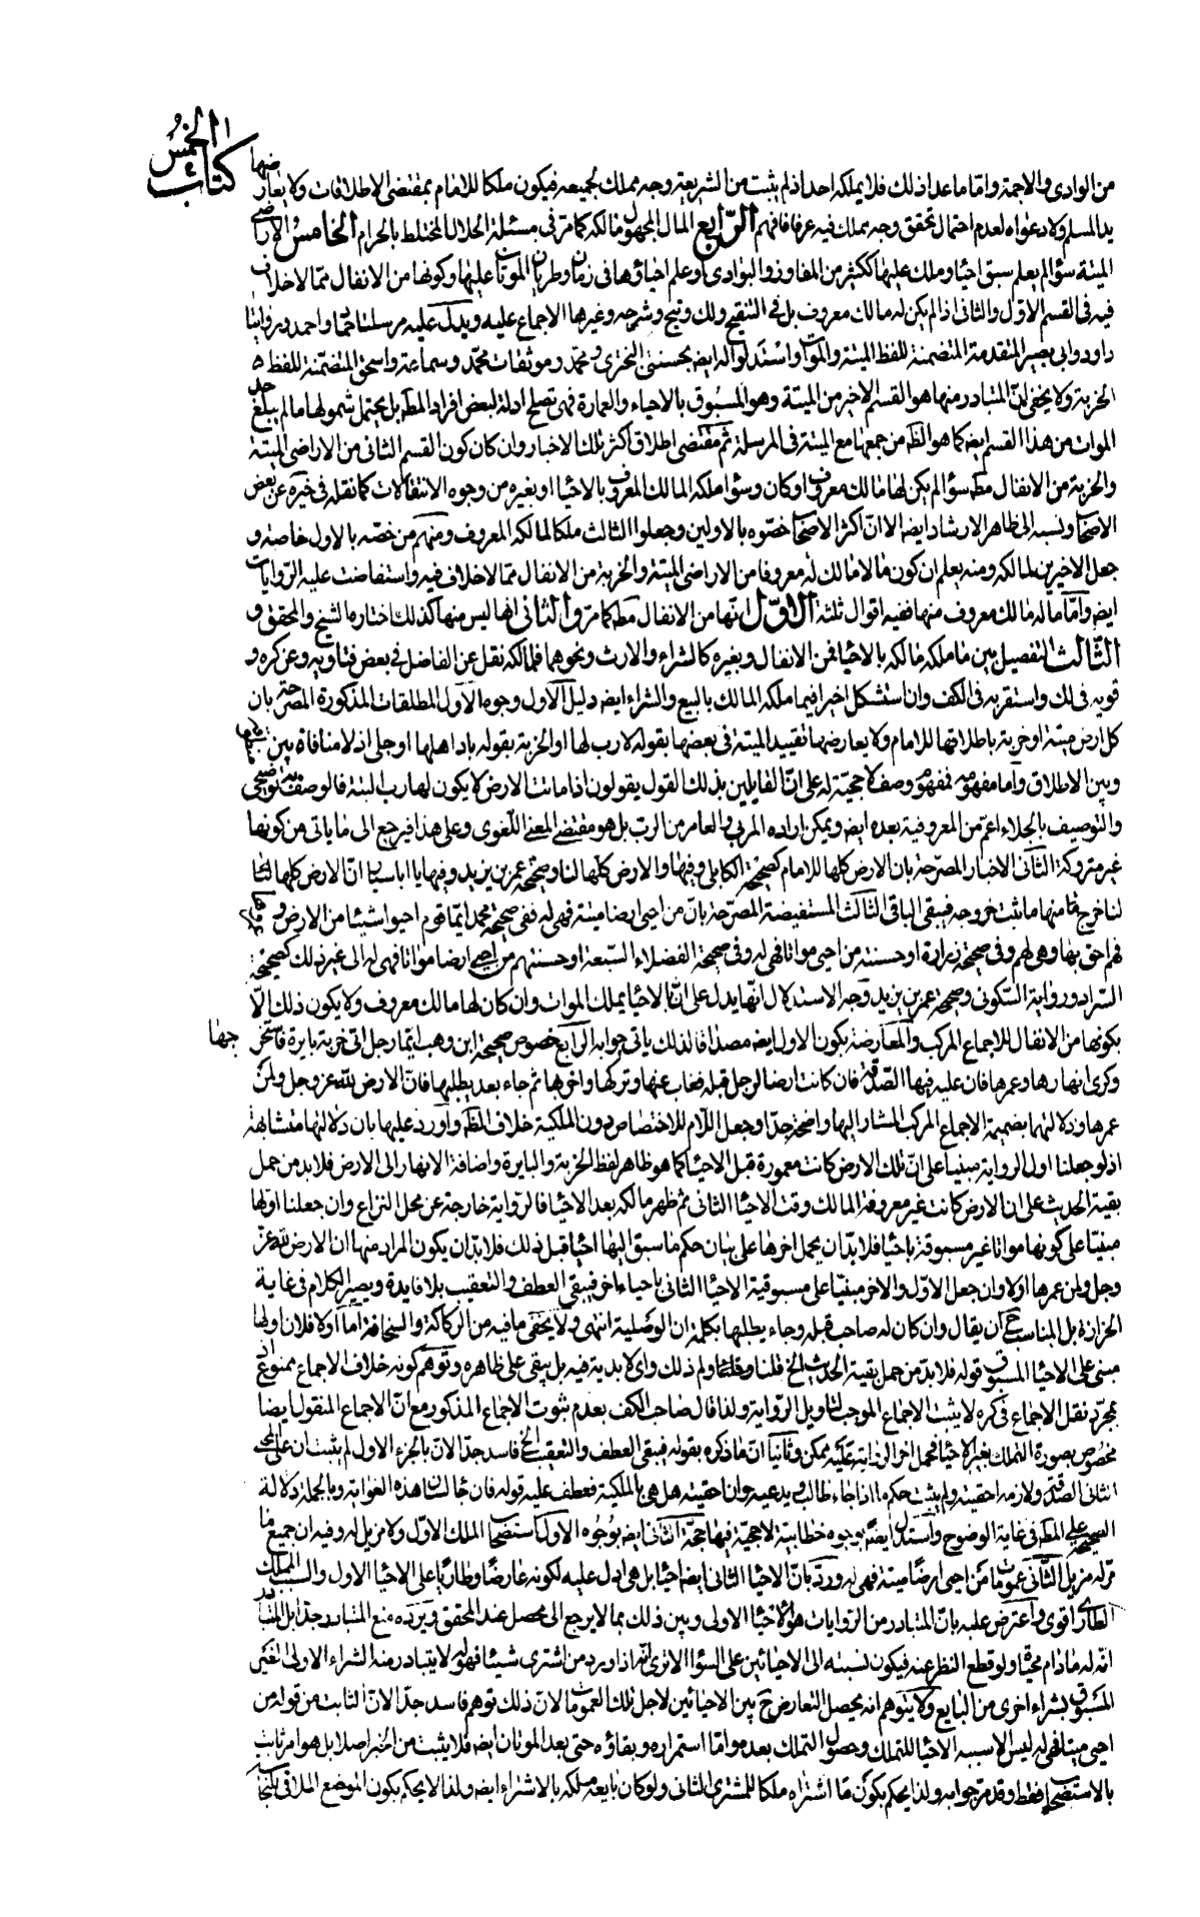 كتاب الخمس
من الوادى والاجمة واما ما عدا ذلك فلا يملكه احد اذ لم يثبت من الشريعة وجه مملك لجميعه فيكون ملكا للامام بمقتضى الاطلاقات ولا يعارضها
يد المسلم ولا دعواه لعدم احتمال تحقق وجه مملك فيه عرفا فافهم الرابع المال المجهول مالكه كما مر فى مسئلة الحلال المختلط بالحرام الخامس الاراضى
الميتة سواء لم يعلم سبق احياء وملك عليها ككثير من المفاوز والبوادى او علم احياؤها فى زمان وطريان الموتان عليها وكونها من الانفال مما لا خلاف
فيه فى القسم الاول والثانى اذا لم يكن له مالك معروف بل فى التنقيح ولك وتيح وشرحه وغيرها الاجماع عليه ويدل عليه مرسلتا حماد واحمد وروايتا
داود وابى بصير المتقدمة المتضمنة للفظ الميتة والموات واستدلوا له ايضا بحسنتى البخترى ومحمد وموثقات محمد وسماعة واسحق المتضمنة للفظ
الخربة ولا يخفى ان المتبادر منها هو القسم الاخير من الميتة وهو المسبوق بالاحياء والعمارة فهى تصلح ادلة لبعض افراد المطلوب بل يحتمل شمولها ما لم يبلغ حد
الموات من هذا القسم ايضا كما هو الظ من جمعها مع الميتة فى المرسلة ثم مقتضى اطلاق اكثر تلك الاخبار وان كان كون القسم الثانى من الاراضى الميتة
والخربة من الانفال مطه سواء لم يكن لها مالك معروف او كان وسواء ملكه المالك المعروف بالاحياء او بغيره من وجوه الانتقالات كما نقله فى خيره عن بعض
الاصحاب ونسبه الى ظاهر الارشاد ايضا الا ان اكثر الاصحاب خصوه بالاولين وجعلوا الثالث ملكا لمالكه المعروف ومنهم من خصه بالاول خاصة و
جعل الاخيرين لمالكه ومنه يعلم ان كون ما لا مالك له معروفا من الاراضى الميتة والخربة من الانفال مما لا خلاف فيه واستفاضت عليه الروايات
ايضا واما ما له مالك معروف منها ففيه اقوال ثلثة الاول انها من الانفال مطه كما مر والثانى انها ليس منها كذلك اختاره الشيخ والمحقق و
الثالث التفصيل بين ما ملكه مالكه بالاحياء فمن الانفال وبغيره كالشراء والارث ونحوهما فلمالكه نقل عن الفاضل فى بعض فتاويه وعن كره و
قويه فى لك واستقربه فى الكف وان استشكل اخيرا فيما ملكه المالك بالبيع والشراء ايضا دليل الاول وجوه الاول المطلقات المذكورة المصرحة بان
كل ارض ميتة او خربة باطلاقها للامام ولا يعارضها تقييد الميتة فى بعضها بقوله لا رب لها او الخربة بقوله باد اهلها او جلى اذ لا منافاة بين
وبين الاطلاق واما مفهومه فمفهوم وصف لا حجية له على ان القايلين بذلك القول يقولون اذا ماتت الارض لا يكون لها رب البتة فالوصف توضيحى
والتوصيف بالجلاء اعم من المعروفية بعده ايضا ويمكن اراده المربى والعامر من الرب بل هو مقتضى المعنى اللغوى وعلى هذا فيرجع الى ما ياتى من كونها
غير متروكة الثانى الاخبار المصرحة بان الارض كلها للامام كصحيحة الكابلى وفيها والارض كلها لنا وصحيحة عمر بن يزيد وفيها يا ابا سيار ان الارض كلها لنا
لنا خرج منها ما ثبت خروجه فيبقى الباقى الثالث المستفيضة المصرحة بان من احيى ارضا ميتة فهى له ففى صحيحة محمد ايما قوم احيوا شيئا من الارض
فهم احق بها وهى لهم وفى صحيحة زرارة او حسنته من احيى مواتا فهى له وفى صحيحة الفضلاء السبعة او حسنتهم من احيى ارضا مواتا فهى له الى غير ذلك كصحيحة
السراد ورواية السكونى وصحيحة عمر بن يزيد وجه الاستدلال انها يدل على ان بالاحياء يملك الموات وان كان لها مالك معروف ولا يكون ذلك الا
بكونها من الانفال للاجماع المركب والمعارضة بكون الاول ايضا مصداقا لذلك ياتى جوابه الرابع خصوص صحيحة ابن وهب ايما رجل اتى خربة بايرة فاستخرجها
وكرى انهارها وعمرها فان عليه فيها الصدقة فان كانت ارضا لرجل قبله فغاب عنها وتركها واخربها ثم جاء بعد يطلبها فان الارض لله عز وجل ولمن
عمرها ودلالتها بضميمة الاجماع المركب المشار اليها واضحة جدا وجعل اللام للاختصاص دون الملكية خلاف الظ واورد عليها بان دلالتها متشابهة
اذ لو جعلنا اول الرواية مبنيا على ان تلك الارض كانت معمورة قبل الاحياء كما هو ظاهر لفظ الخربة والبايرة واضافة الانهار الى الارض فلا بد من حمل
بقية الحديث على ان الارض كانت غير معروفة المالك وقت الاحياء الثانى ثم ظهر مالكه بعد الاحياء فالرواية خارجة عن محل النزاع وان جعلنا اولها
مبنيا على كونها مواتا غير مسبوقة باحياء فلا بد ان يحمل اخرها على بيان حكم ما سبق اليها احياء قبل ذلك فلا بد ان يكون المراد منها ان الارض لله عز
وجل ولمن عمرها اولا وان جعل الاول والاخر مبنيا على مسبوقية الاحياء الثانى باحياء اخر فيبقى العطف والتعقيب بلا فايدة ويصير الكلام فى غاية
الحزازة بل المناسب ح ان يقال وان كان له صاحب قبله وجاء يطلبها بكلمة ان الوصلية انتهى ولا يخفى ما فيه من الركاكة والسخافة اما اولا فلان اولها
مبنى على الاحياء المسبوق قوله فلا بد من حمل بقية الحديث الخ قلنا ولم ذلك واى لا بدية فيه بل يبقى على ظاهره وتوهم كونه خلاف الاجماع ممنوع اذ
بمجرد نقل الاجماع فى كره لا يثبت الاجماع الموجب لتاويل الرواية ولذا قال صاحب الكف بعدم ثبوت الاجماع المذكور مع ان الاجماع المنقول ايضا
مخصوص بصورة التملك بغير الاحياء فحمل اخر الرواية عليه ممكن وثانيا ان ما ذكره بقوله فيبقى العطف والتعقيب الخ فاسد جدا لان بالجزء الاول لم يثبت ان على المحيى
الثانى الصدقة ولازمه احقيته ولم يثبت حكم ما اذا جاء طالب ويدعيه وان احقيته هل هى بالملكية فعطف عليه قوله فان كانت لهذه الغواية وبالجملة دلالة
الصحيحة على المطه فى غاية الوضوح واستدل ايضا بوجوه خطابية لا حجية فيها حجة الثانى ايضا بوجوه الاول استصحاب الملك الاول ولا مزيل له وفيه ان جميع ما
مر له مزيل الثانى عمومات من احيى ارضا ميتة فهى له ورد بان الاحياء الثانى ايضا احياء بل هى ادل عليه لكونه عارضا وطاريا على الاحياء الاول والسبب المملك
الطارى اقوى واعترض عليه بان المتبادر من الروايات هو الاحياء الاولى وبين ذلك بما لا يرجع الى محصل عند المحقق ويرده منع المتبادر جدا بل المتبادر
انه له ما دام محياة ولو قطع النظر عنه فيكون نسبته الى الاحيائين على السواء الا ترى انه اذا ورد من اشترى شيئا فهو له لا يتبادر منه الشراء الاولى الغير
المسبوق بشراء اخرى من البايع ولا يتوهم انه يحصل التعارض ح بين الاحيائين لاجل تلك العمومات لان ذلك توهم فاسد جدا لان الثابت من قوله من
احيى ميتا فهى له ليس الا سببية الاحياء للتملك وحصول التملك بعده واما استمراره وبقاؤه حتى بعد الموتان ايضا فلا يثبت من الخبر اصلا بل هو امر ثابت
بالاستصحاب فقط وقد مر جوابه ولذا يحكم بكون ما اشتراه ملكا للمشترى الثانى ولو كان بايعه ملكه بالاشتراء ايضا ولذا لا يحكم بكون الموضع الملاقى للنجاسة